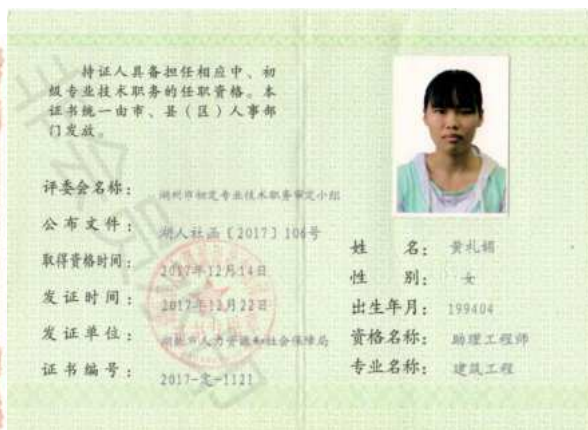 持证人具备担任相应中、初
级专业技术职务的任职资格。本
证书统一由市、县（区）人事部
门发放。
评委会名称： 湖州市初定专业技术职务审定小组
公布文件： 湖人社函〔2017〕106号
取得资格时间： 2017年12月14日
发证时间： 2017年12月22日
发证单位： 湖州市人力资源和社会保障局
证书编号： 2017-定-1121
姓 名： 黄礼娟
性 别： 女
出生年月： 199404
资格名称： 助理工程师
专业名称： 建筑工程